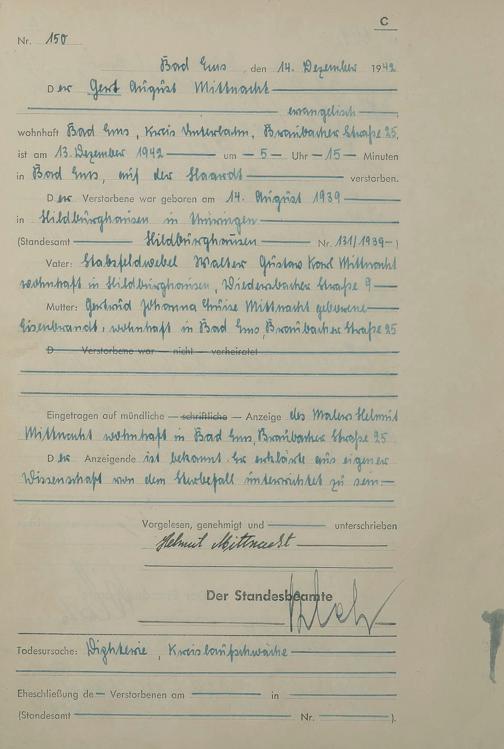 C
Nr. 150
Bad Ems, den 14. Dezember 1942
Der Gert August Mittnacht
evangelisch,
wohnhaft Bad Ems, Kreis Unterlahn, Braubacher Straße 25,
ist am 13. Dezember 1942 um 5 Uhr 15 Minuten
in Bad Ems, auf der Haardt verstorben.
Der Verstorbene war geboren am 14. August 1939
in Hildburghausen in Thüringen
(Standesamt Hildburghausen Nr. 131/1939)
Vater: Stabsfeldwebel Walter Gustav Karl Mittnacht
wohnhaft in Hildburghausen, Wiedersbacher Straße 9
Mutter: Gertrud Johanna Luise Mittnacht geborene
Eisenbrandt, wohnhaft in Bad Ems, Braubacher Straße 25
D Verstorbene war — nicht — verheiratet
Eingetragen auf mündliche — schriftliche — Anzeige des Malers Helmut
Mittnacht wohnhaft in Bad Ems, Braubacher Straße 25.
Der Anzeigende ist bekannt. Er erklärte aus eigener
Wissenschaft von dem Sterbefall unterrichtet zu sein
Vorgelesen, genehmigt und unterschrieben
Helmut Mittnacht
Der Standesbeamte
Todesursache: Diphterie, Kreislaufschwäche
Eheschließung de Verstorbenen am in
(Standesamt Nr. ).